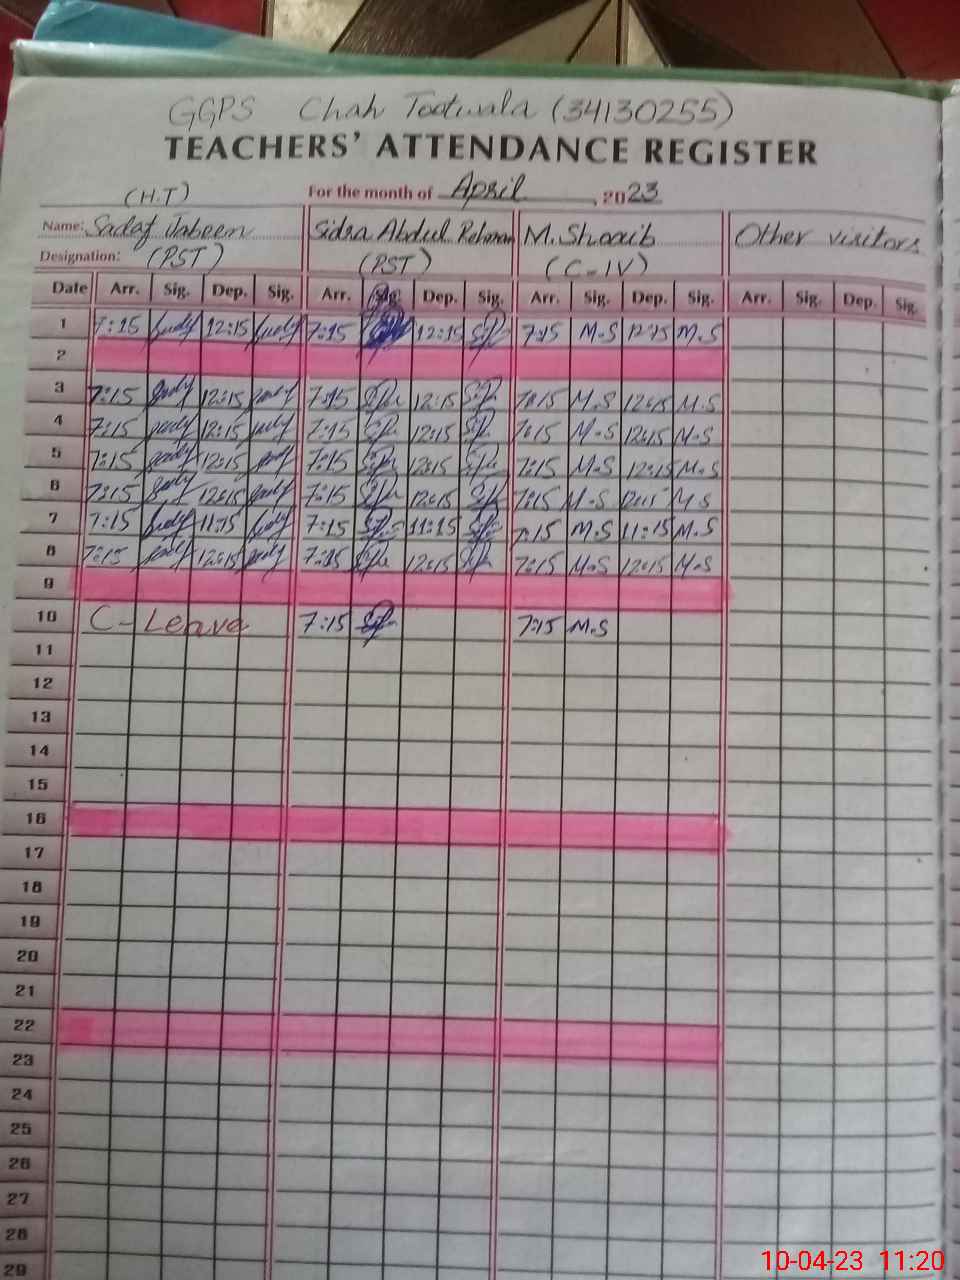 GGPS Chah Tootwala (34130255)
TEACHERS' ATTENDANCE REGISTER
(H.T) For the month of April, 2023
Name: Sadaf Jabeen Sidra Abdul Rehman M. Shoaib Other visitors
Designation: (PST) (PST) (C-IV)
Date Arr. Sig. Dep. Sig. Arr. Sig. Dep. Sig. Arr. Sig. Dep. Sig. Arr. Sig. Dep. Sig.
1 7:15 12:15 7:15 12:15 7:15 M.S 12:15 M.S
2
3 7:15 12:15 7:15 12:15 7:15 M.S 12:15 M.S
4 7:15 12:15 7:15 12:15 7:15 M.S 12:15 M.S
5 7:15 12:15 7:15 12:15 7:15 M.S 12:15 M.S
6 7:15 12:15 7:15 12:15 7:15 M.S 12:15 M.S
7 7:15 11:15 7:15 11:15 7:15 M.S 11:15 M.S
8 7:15 12:15 7:15 12:15 7:15 M.S 12:15 M.S
9
10 C-Leave 7:15 7:15 M.S
11
12
13
14
15
16
17
18
19
20
21
22
23
24
25
26
27
28
29
10-04-23 11:20